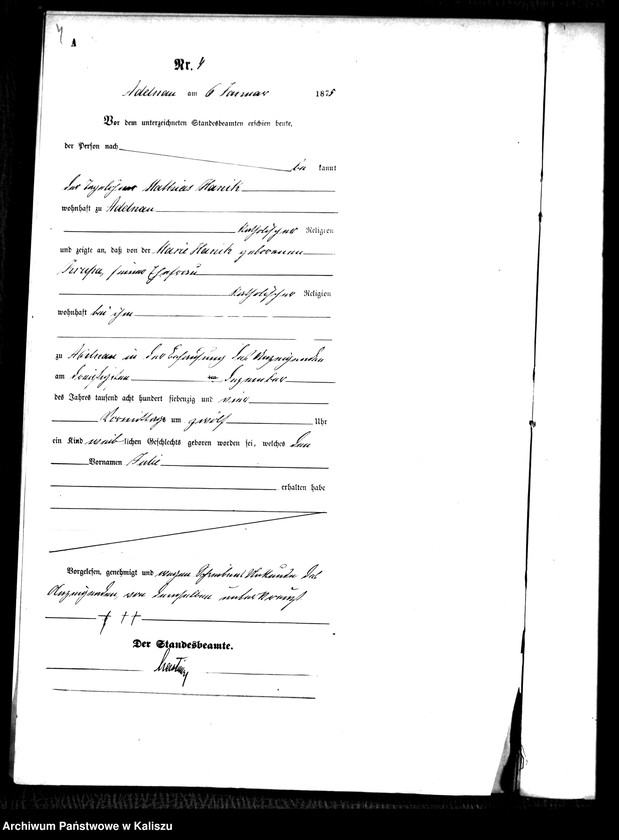 4
A
Nr. 4
Adelnau am 6 Januar 1875
Vor dem unterzeichneten Standesbeamten erschien heute,
der Person nach
be kannt
der Tagelöhner Mathias Hanik
wohnhaft zu Adelnau
katholischer Religion
und zeigte an, daß von der Marie Hanik geborenen
seiner Ehefrau
katholischer Religion
wohnhaft bei ihm
zu Adelnau in der Behausung des Anzeigenden
am Dezember
des Jahres tausend acht hundert siebenzig und vier
Vormittags um zwölf Uhr
ein Kind weib lichen Geschlechts geboren worden sei, welches den
Vornamen Julie
erhalten habe
Vorgelesen, genehmigt und wegen Schreibens Unkunde des
Anzeigenden von demselben unterkreuzt
† ††
Der Standesbeamte.
Archiwum Państwowe w Kaliszu